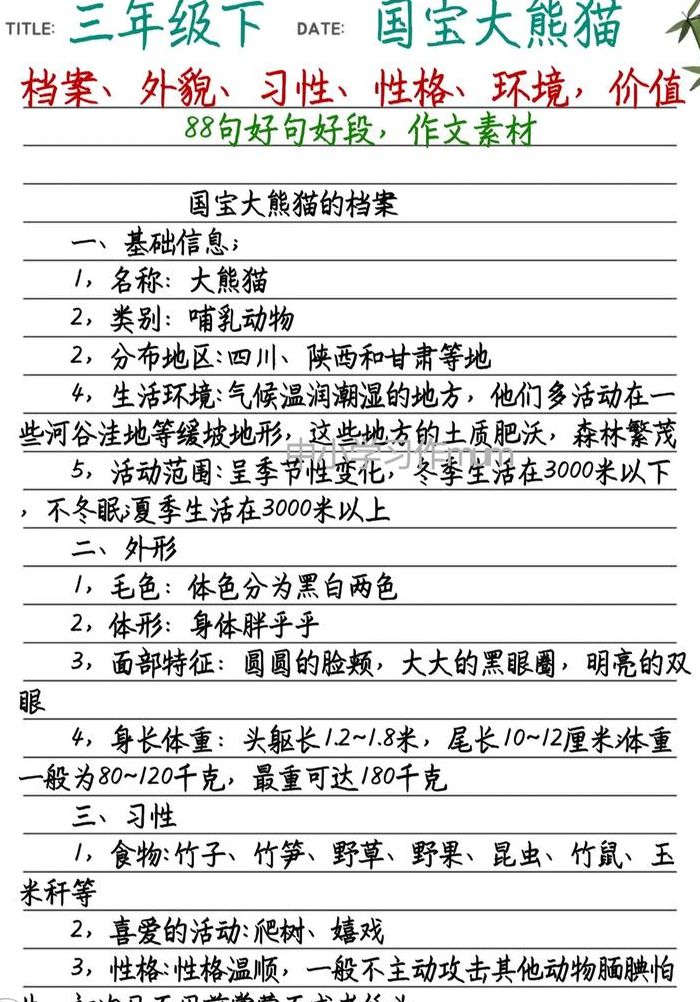 TITLE: 三年级下 DATE: 国宝大熊猫
档案、外貌、习性、性格、环境，价值
88句好句好段，作文素材
国宝大熊猫的档案
一、基础信息；
1，名称：大熊猫
2，类别：哺乳动物
2，分布地区：四川、陕西和甘肃等地
4，生活环境：气候温润潮湿的地方，他们多活动在一
些河谷洼地等缓坡地形，这些地方的土质肥沃，森林繁茂
中小学习作mum
5，活动范围：呈季节性变化，冬季生活在3000米以下
，不冬眠；夏季生活在3000米以上
二、外形
1，毛色：体色分为黑白两色
2，体形：身体胖乎乎
3，面部特征：圆圆的脸颊，大大的黑眼圈，明亮的双
眼
4，身长体重：头躯长1.2~1.8米，尾长10~12厘米；体重
一般为80~120千克，最重可达180千克
三、习性
1，食物：竹子、竹笋、野草、野果、昆虫、竹鼠、玉
米秆等
2，喜爱的活动：爬树、嬉戏
3，性格：性格温顺，一般不主动攻击其他动物腼腆怕